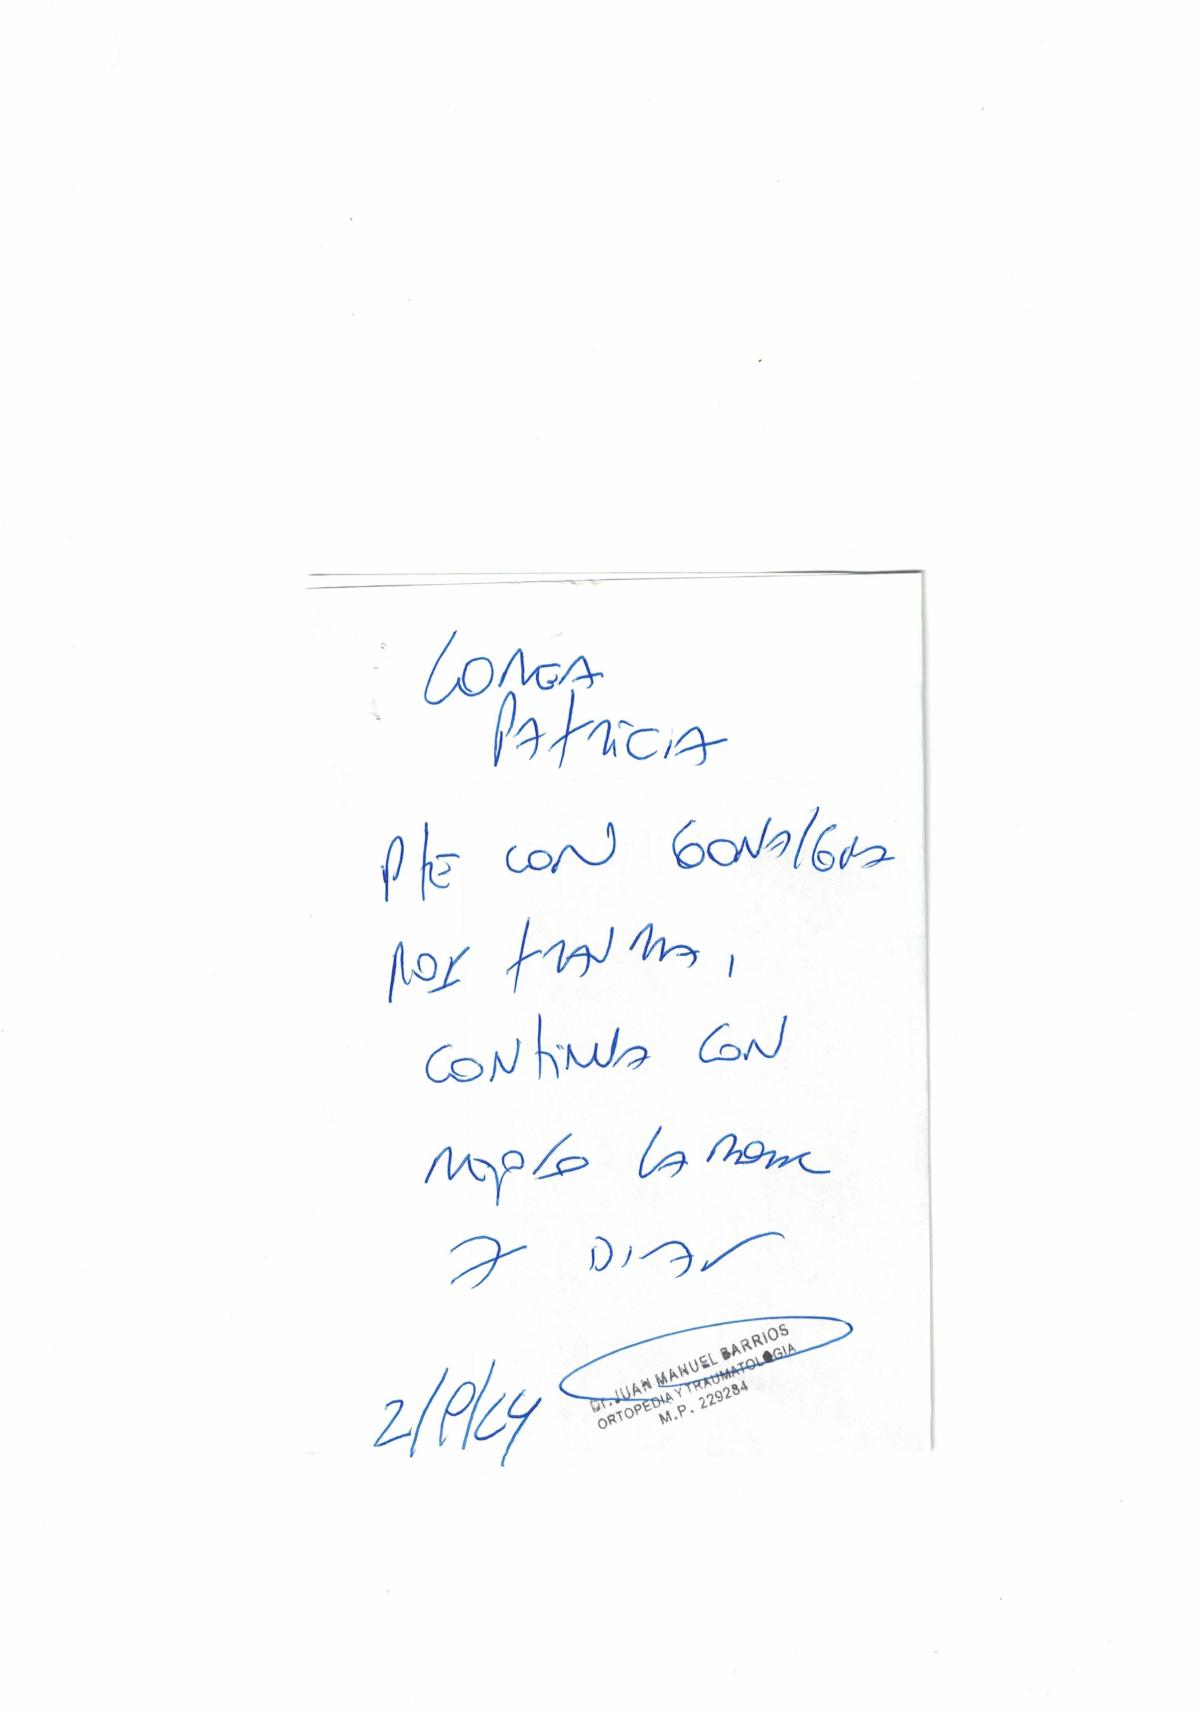 CORREA
PATRICIA
PTE CON GONALGIA
POR TRAUMA,
CONTINUA CON
REPOSO LABORAL
7 DIAS
2/9/24
Dr. JUAN MANUEL BARRIOS
ORTOPEDIA Y TRAUMATOLOGIA
M.P. 229284